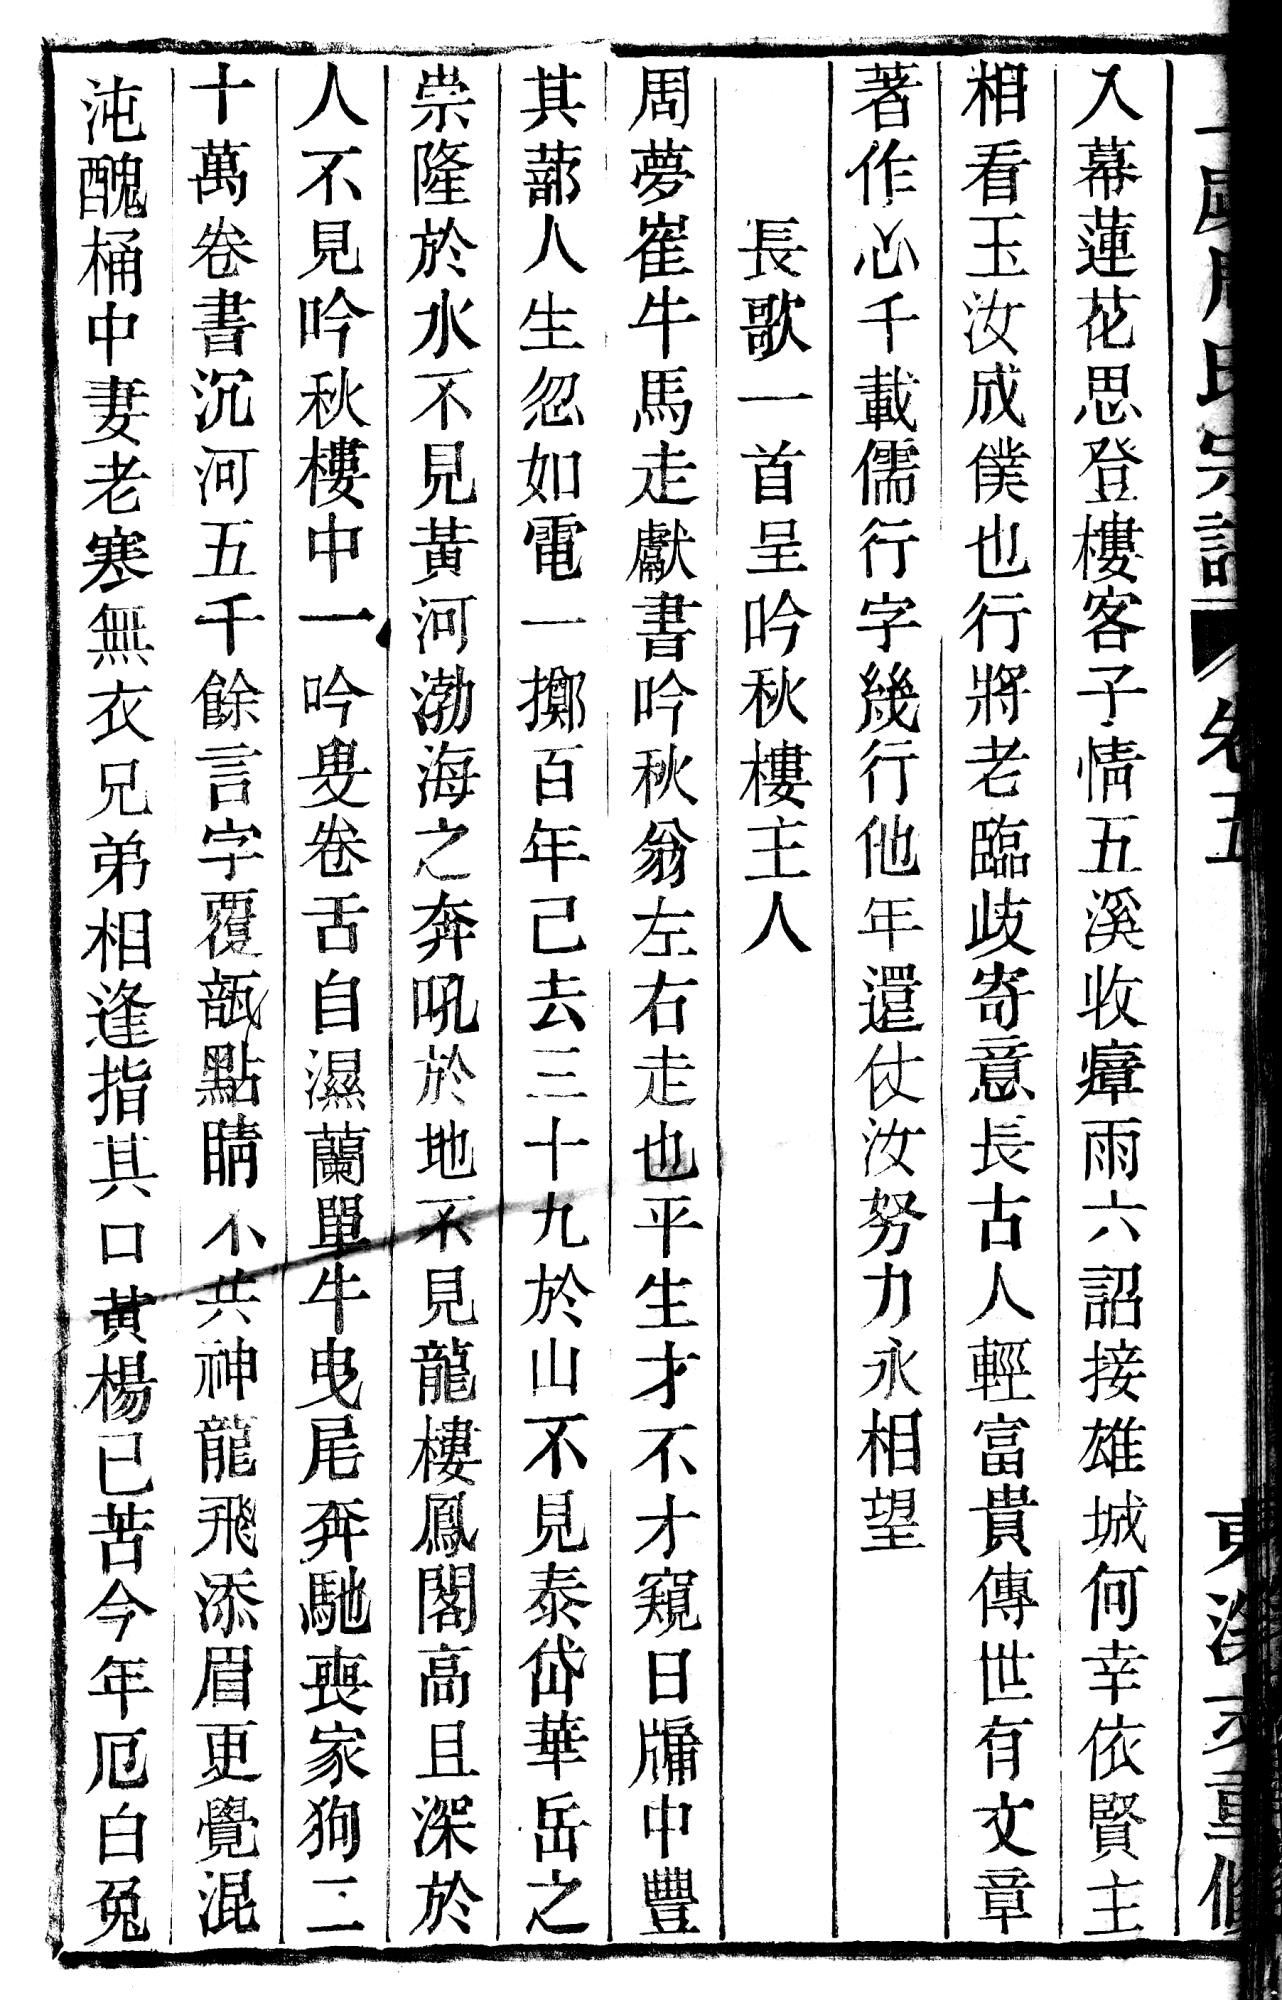 周氏宗譜 卷五 重修
入幕蓮花思登樓客子情五溪收瘴雨六詔接雄城何幸依賢主
相看玉汝成僕也行將老臨歧寄意長古人輕富貴傳世有文章
著作心千載儒行字幾行他年還仗汝努力永相望
長歌一首呈吟秋樓主人
周夢崔牛馬走獻書吟秋翁左右走也平生才不才窺日牖中豐
其蔀人生忽如電一擲百年己去三十九於山不見泰岱華岳之
崇隆於水不見黃河渤海之奔吼於地不見龍樓鳳閣高且深於
人不見吟秋樓中一吟叟卷舌自濕蘭單牛曳尾奔馳喪家狗二
十萬卷書沉河五千餘言字覆瓿點睛不共神龍飛添眉更覺混
沌醜桶中妻老寒無衣兄弟相逢指其口黃楊已苦今年厄白兔